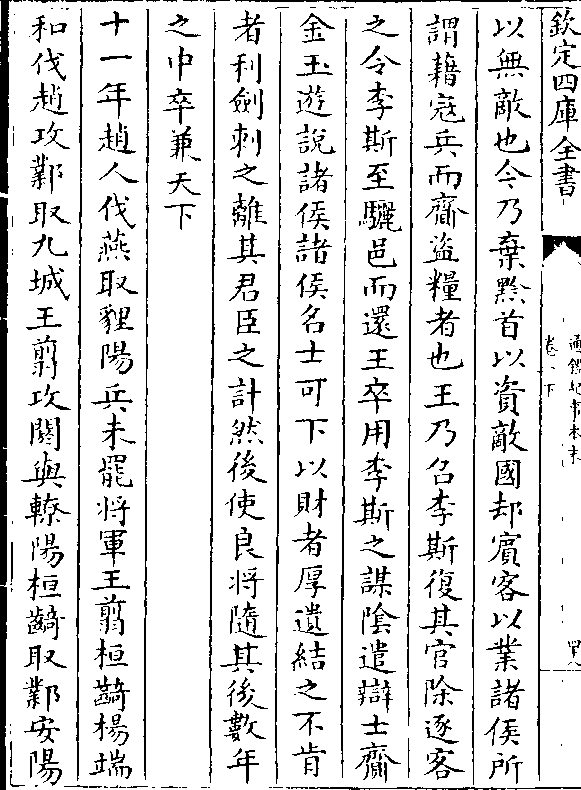 欽定四庫全書
通鑑紀事本末
卷一下
四八
以無敵也今乃棄黔首以資敵國却賓客以業諸侯所
謂藉寇兵而齎盜糧者也王乃召李斯復其官除逐客
之令李斯至驪邑而還王卒用李斯之謀陰遣辯士齎
金玉遊說諸侯諸侯名士可下以財者厚遺結之不肯
者利劍刺之離其君臣之計然後使良將隨其後數年
之中卒兼天下
十一年趙人伐燕取貍陽兵未罷將軍王翦桓齮楊端
和伐趙攻鄴取九城王翦攻閼與轑陽桓齮取鄴安陽